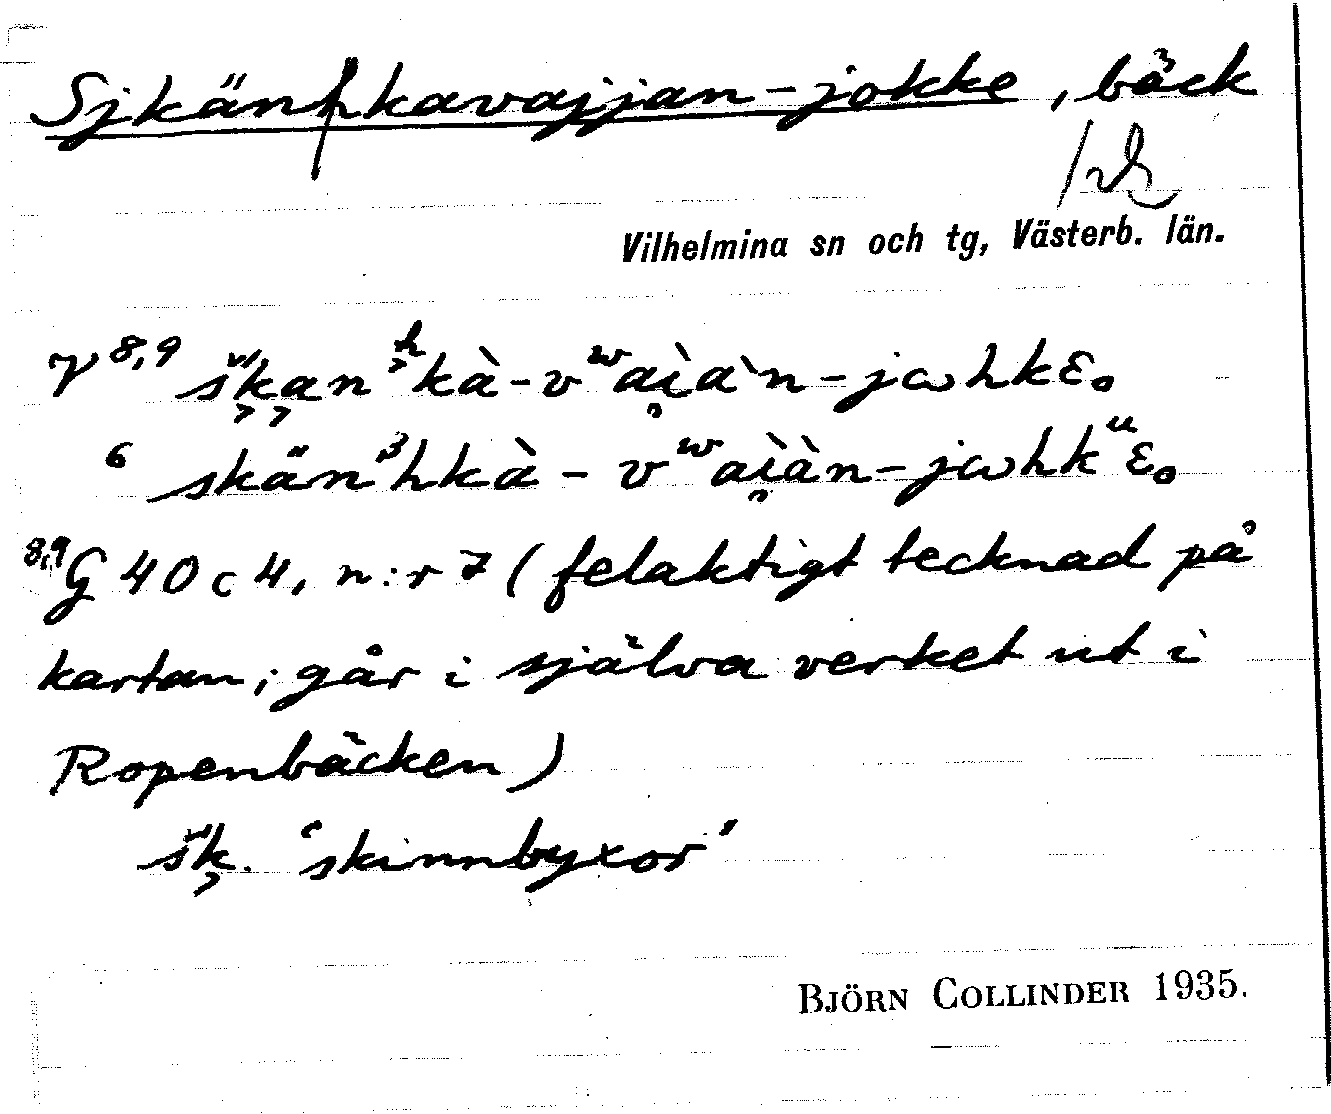 Sjkänhkavajjan-jokke, bäck
Vilhelmina sn och tg, Västerb. län.
γ 8,9 šk̯a̯nʰkà-vʷai̯àn-jωhkε.
6 skänᵌhkà-vʷai̯àn-jωhkᵘε.
8,9 G 40 c 4, n:r 7 (felaktigt tecknad på
kartan; går i själva verket ut i
Ropenbäcken)
šk̯. ‘skinnbyxor’
BJÖRN COLLINDER 1935.